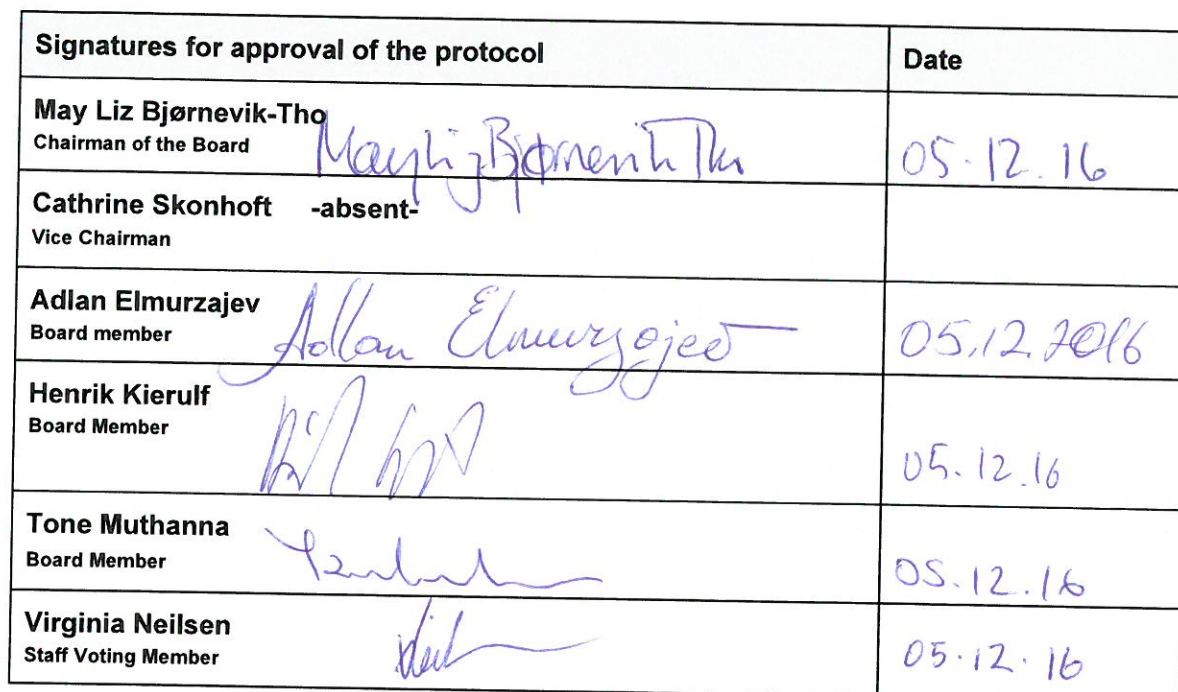 Signatures for approval of the protocol Date
May Liz Bjørnevik-Tho
Chairman of the Board
May Liz Bjørnevik Tho 05.12.16
Cathrine Skonhoft -absent-
Vice Chairman
Adlan Elmurzajev
Board member
Adlan Elmurzajev 05.12.2016
Henrik Kierulf
Board Member
05.12.16
Tone Muthanna
Board Member
05.12.16
Virginia Neilsen
Staff Voting Member
05.12.16